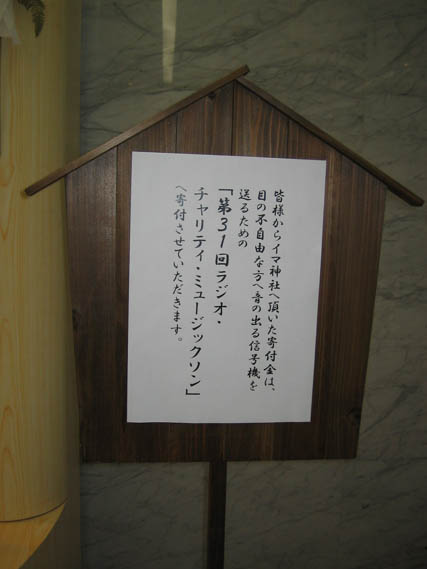 皆様からイマ神社へ頂いた寄付金は、
目の不自由な方へ音の出る信号機を
送るための
「第31回ラジオ・
チャリティ・ミュージックソン」
へ寄付させていただきます。